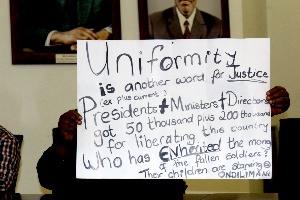 Uniformity
is another word for Justice
(ex plus current)
Presidents + Ministers + Directors
got 50 thousand plus 200 thousand
for liberating this country
Who has ENherited the money
of the fallen soldiers?
Their children are starving
ONDILIMANI